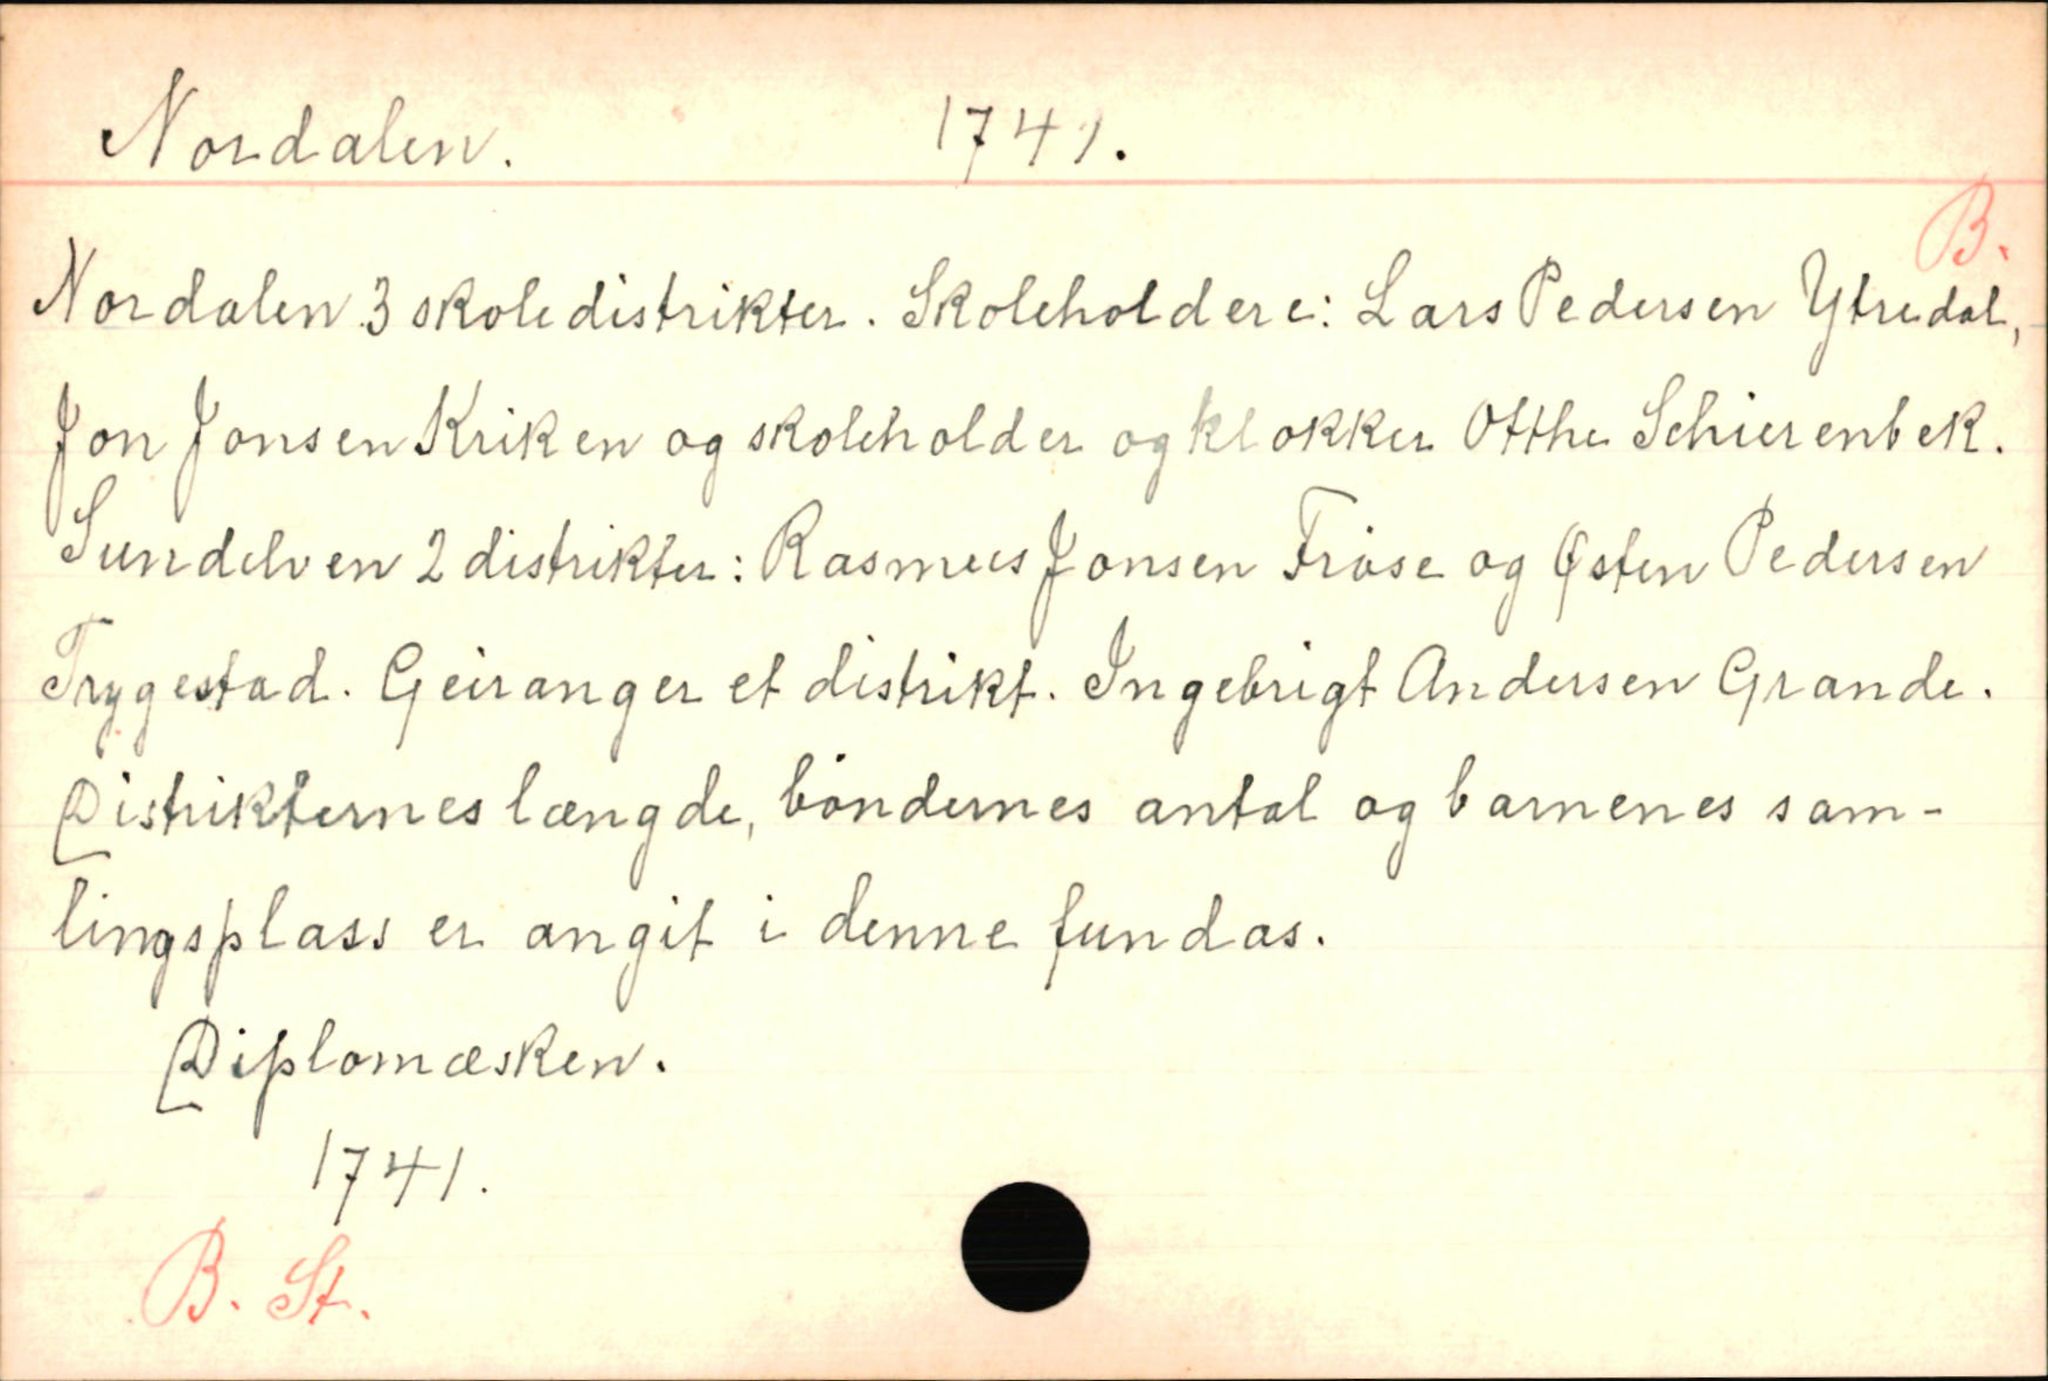 Nordalen. 1741.
B.
Nordalen 3 skoledistrikter. Skoleholdere: Lars Pedersen Ytredal,
Jon Jonsen Kriken og skoleholder og klokker Otthe Schierenbek.
Sundelven 2 distrikter: Rasmus Jonsen Frøse og Østen Pedersen
Trygestad. Geiranger et distrikt. Ingebrigt Andersen Grande.
Distrikternes længde, bøndernes antal og barnenes sam-
lingsplass er angit i denne fundas.
Diplomæsken.
1741.
B. St.